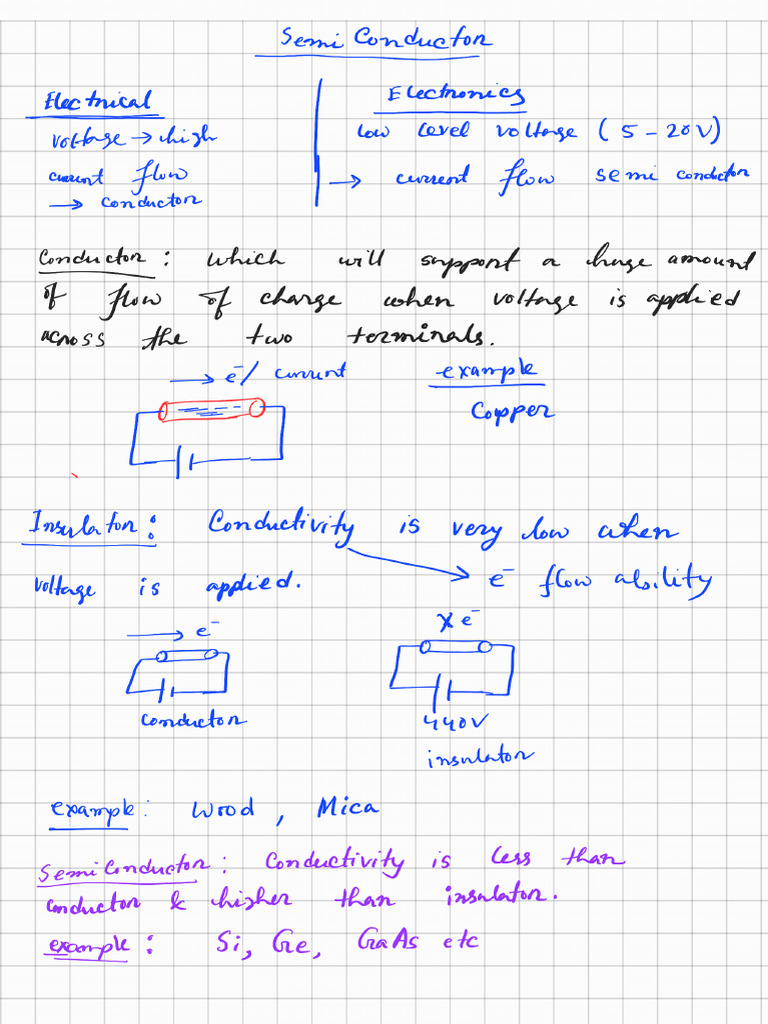 Semi Conductor
Electrical
voltage → high
current flow
→ conductor
Electronics
low level voltage (5-20V)
→ current flow semi conductor
Conductor: which will support a huge amount
of flow of charge when voltage is applied
across the two terminals.
→ e⁻/ current
example
Copper
Insulator: Conductivity is very low when
voltage is applied.
e⁻ flow ability
→ e⁻
conductor
X e⁻
440V
insulator
example: Wood, Mica
Semi Conductor: Conductivity is less than
conductor & higher than insulator.
example: Si, Ge, GaAs etc